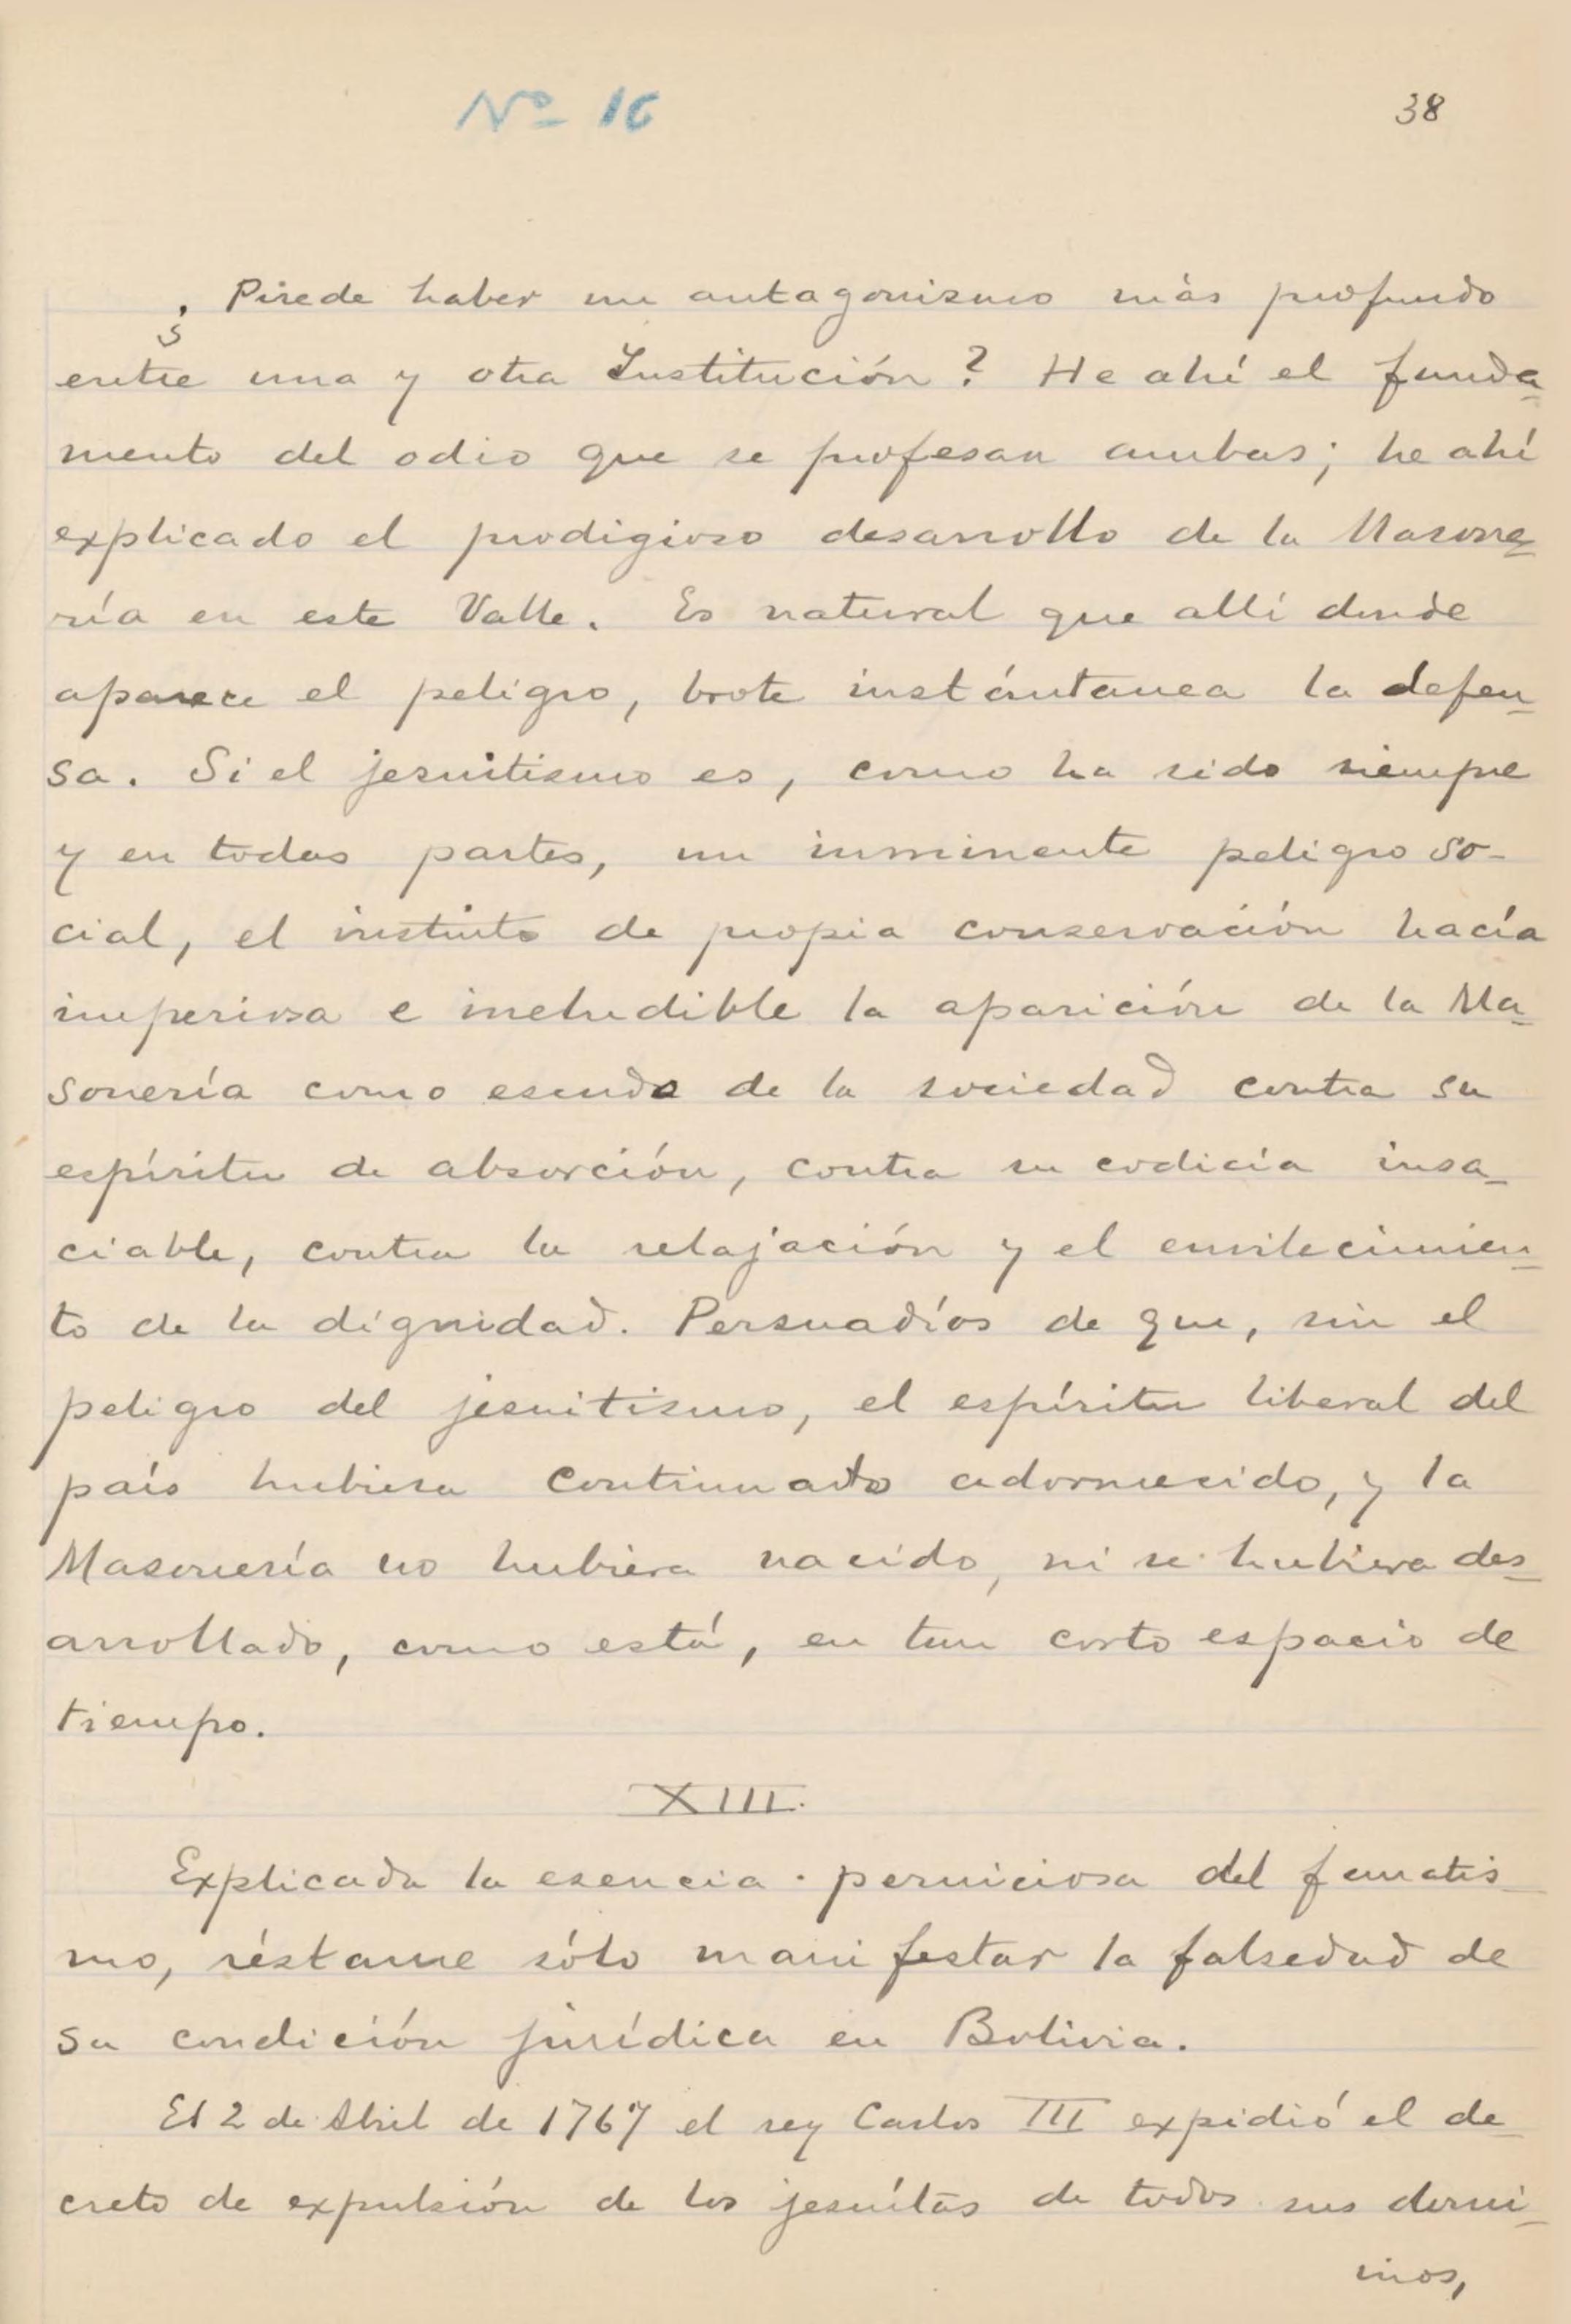 Nº 16
38
¿Puede haber un antagonismo más profundo
entre una y otra Institución? He ahí el funda-
mento del odio que se profesan ambas; he ahí
explicado el prodigioso desarrollo de la Masone-
ría en este Valle. Es natural que allí donde
aparece el peligro, brote instántanea la defen-
sa. Si el jesuitismo es, como ha sido siempre
y en todas partes, un inminente peligro so-
cial, el instinto de propia conservación hacía
imperiosa e ineludible la aparición de la Ma-
sonería como escudo de la sociedad contra su
espíritu de absorción, contra su codicia insa-
ciable, contra la relajación y el envilecimien-
to de la dignidad. Persuadíos de que, sin el
peligro del jesuitismo, el espíritu liberal del
país hubiera continuado adormecido, y la
Masonería no hubiera nacido, ni se hubiera des-
arrollado, como está, en tan corto espacio de
tiempo.
XIII.
Explicada la esencia perniciosa del fanatis-
mo, réstame sólo manifestar la falsedad de
su condición jurídica en Bolivia.
El 2 de Abril de 1767 el rey Carlos III expidió el de-
creto de expulsión de los jesuítas de todos sus domi-
nios,